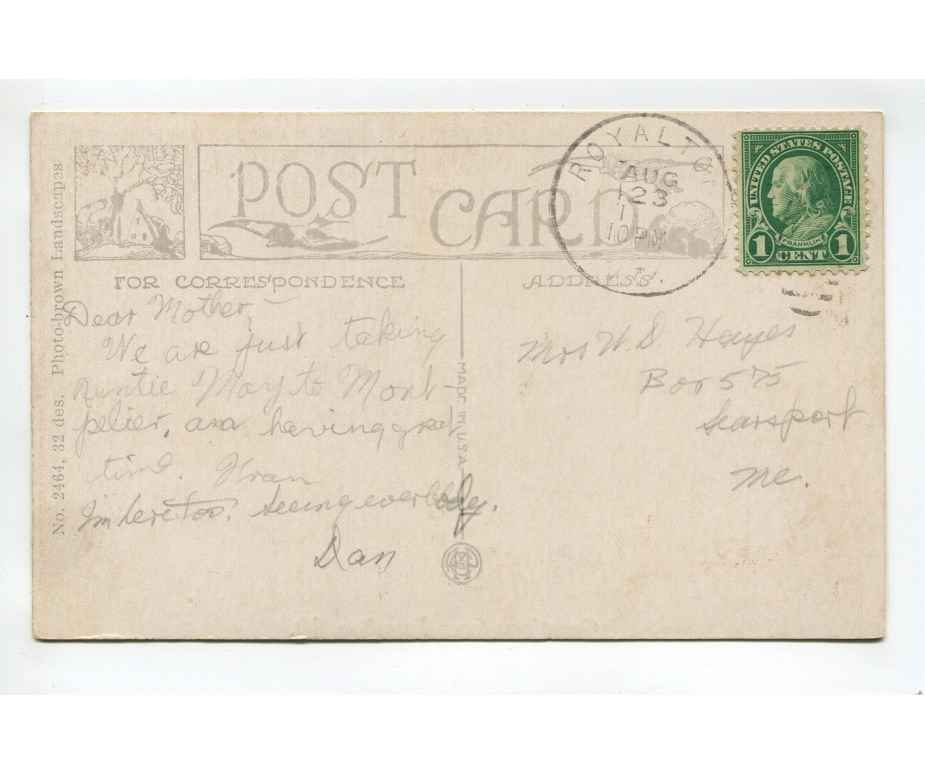 No. 2464, 32 des. Photo-brown Landscapes
POST CARD
FOR CORRESPONDENCE
ADDRESS
MADE IN U.S.A.
ROYALTO
AUG
23
10 PM
UNITED STATES POSTAGE
FRANKLIN
1 CENT 1
Dear Mother,
We are just taking
Auntie May to Mont-
pelier, and having great
time. Fran
Im here too. Seeing everbody.
Dan
Mrs W. S. Hayes
Box 575
Searsport
Me.